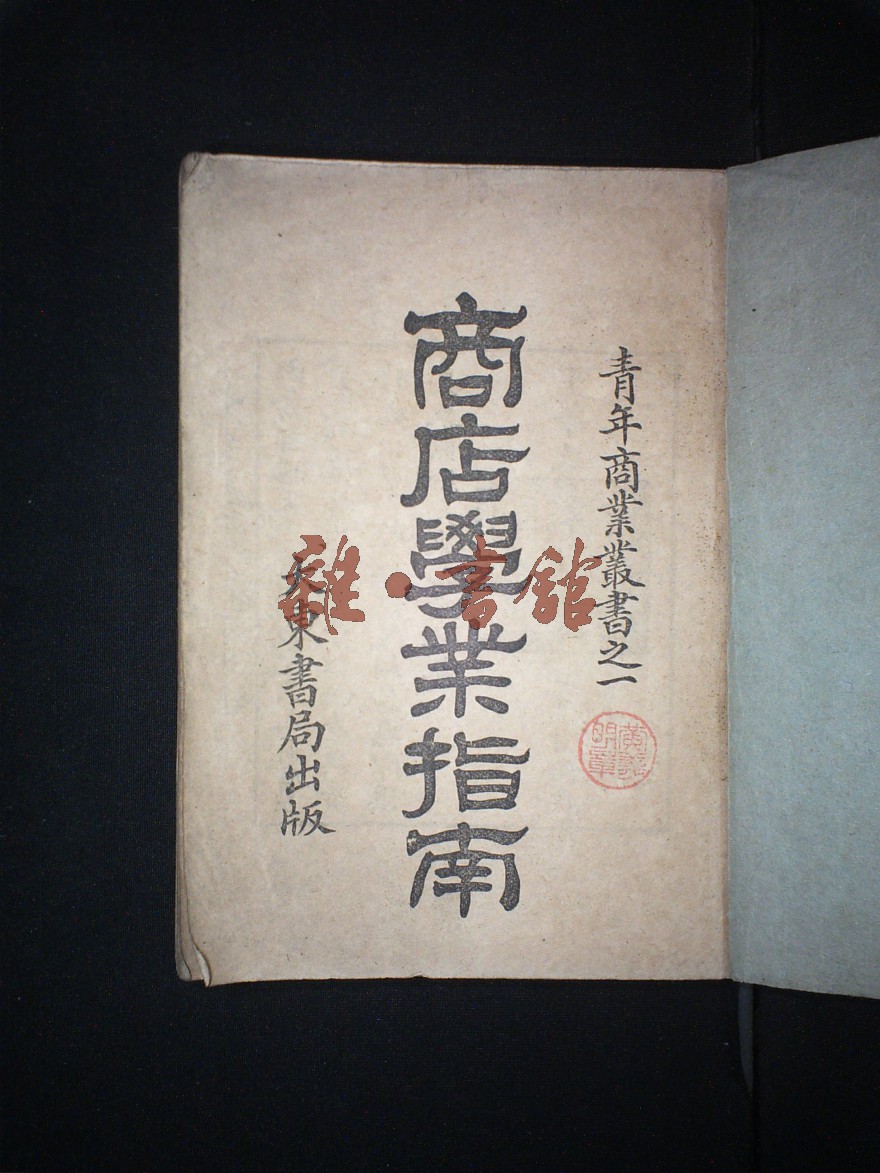 青年商業叢書之一
商店學業指南
大東書局出版
雜·書館